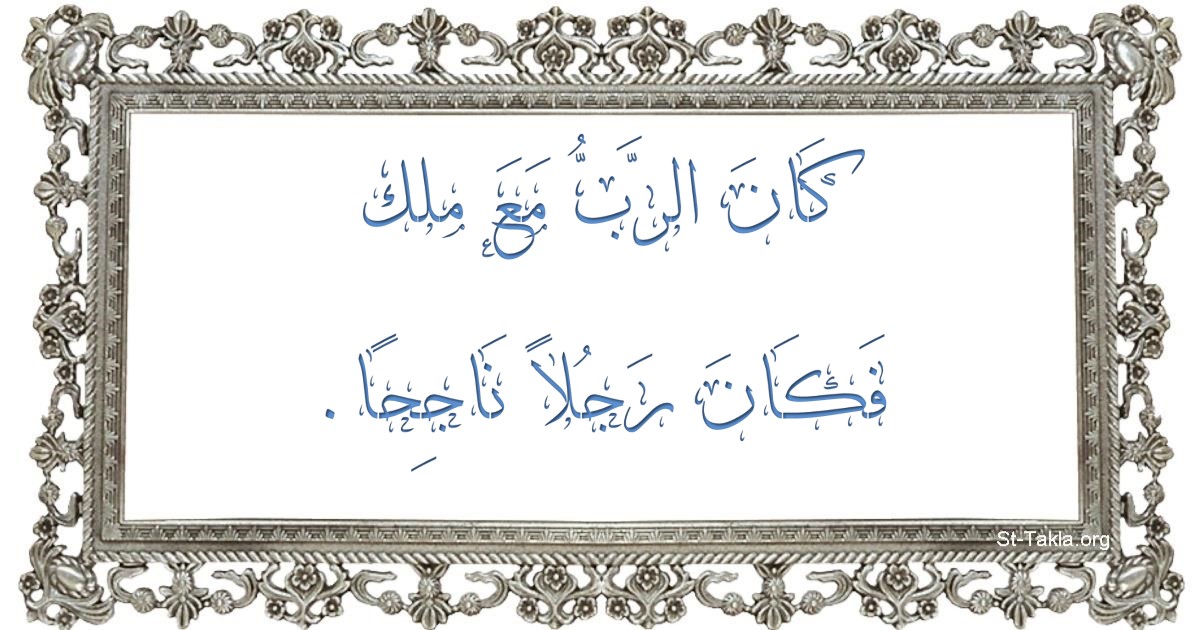 كَانَ الرَّبُّ مَعَ مِلك
فَكَانَ رَجُلاً نَاجِحًا .
St-Takla.org